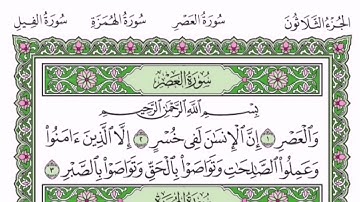 الجزء الثلاثون سورة العصر سورة الهمزة سورة الفيل
سُورَةُ الْعَصْرِ
بِسْمِ اللَّهِ الرَّحْمَٰنِ الرَّحِيمِ
وَالْعَصْرِ ١ إِنَّ الْإِنسَانَ لَفِي خُسْرٍ ٢ إِلَّا الَّذِينَ آمَنُوا
وَعَمِلُوا الصَّالِحَاتِ وَتَوَاصَوْا بِالْحَقِّ وَتَوَاصَوْا بِالصَّبْرِ ٣